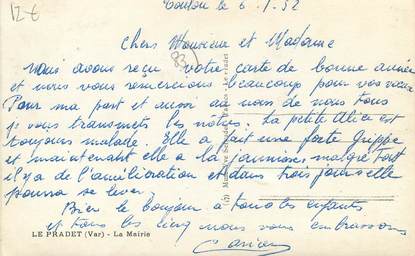 12 €
Toulon le 6.1.52
Chers Monsieur et Madame
(83)
Nous avons reçu votre carte de bonne année
et nous vous remercions beaucoup pour vos vœux
Pour ma part et aussi au nom de nous tous
je vous transmets les nôtres. La petite Alice est
toujours malade. Elle a fait une forte grippe
et maintenant elle a la jaunisse malgré tout
il y a de l'amélioration et dans trois jours elle
pourra se lever.
Bien le bonjour à tous les enfants
et tous les cinq nous vous embrassons
LE PRADET (Var) - La Mairie